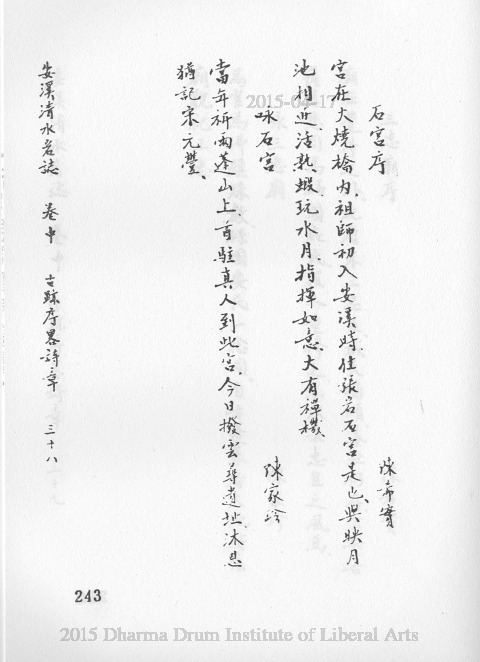 石宮序
陳希實
宮在大燒橋內、祖師初入安溪時、住張岩石宮是也、與映月
池相近、活熟蝦、玩水月、指揮如意、大有禪機、
咏石宮
陳家珍
當年祈雨蓬山上、首駐真人到此宮、今日撥雲尋遺址、沐恩
猶記宋元豐、
安溪清水岩誌 卷中 古跡序畧詩章 三十八
243
2015-04-17
2015 Dharma Drum Institute of Liberal Arts